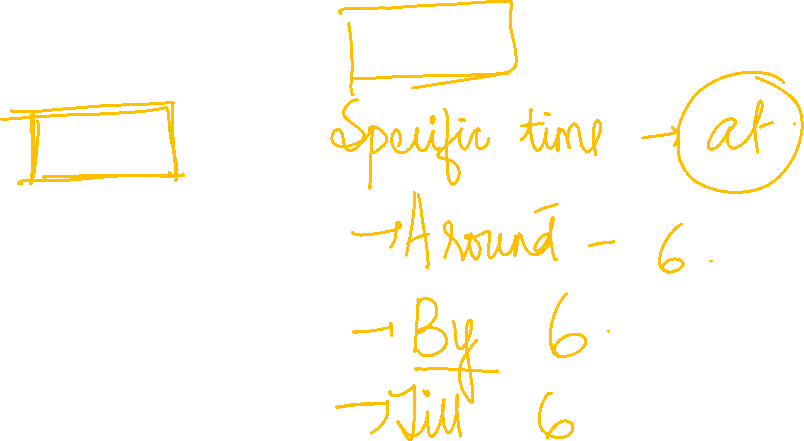 Specific time → at
→ Around - 6.
→ By 6.
→ Till 6